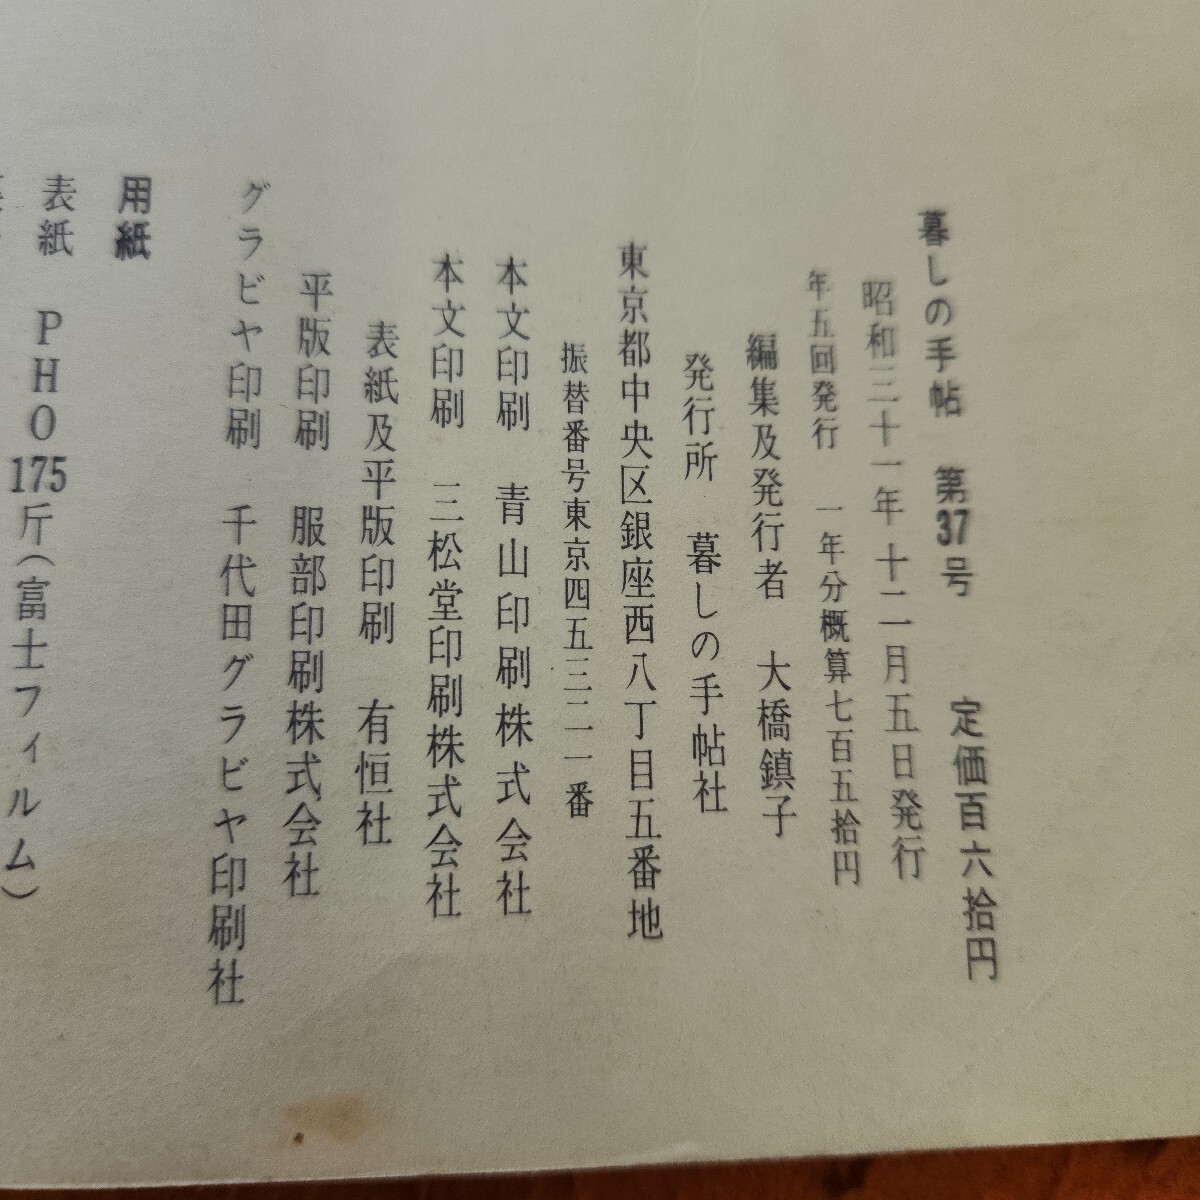 暮しの手帖 第37号 定価百六拾円
昭和三十一年十二月五日発行
年五回発行 一年分概算七百五拾円
編集及発行者 大橋鎮子
発行所 暮しの手帖社
東京都中央区銀座西八丁目五番地
振替番号東京四五三二一番
本文印刷 青山印刷株式会社
本文印刷 三松堂印刷株式会社
表紙及平版印刷 有恒社
平版印刷 服部印刷株式会社
グラビヤ印刷 千代田グラビヤ印刷社
用紙
表紙 PHO175斤(富士フィルム)